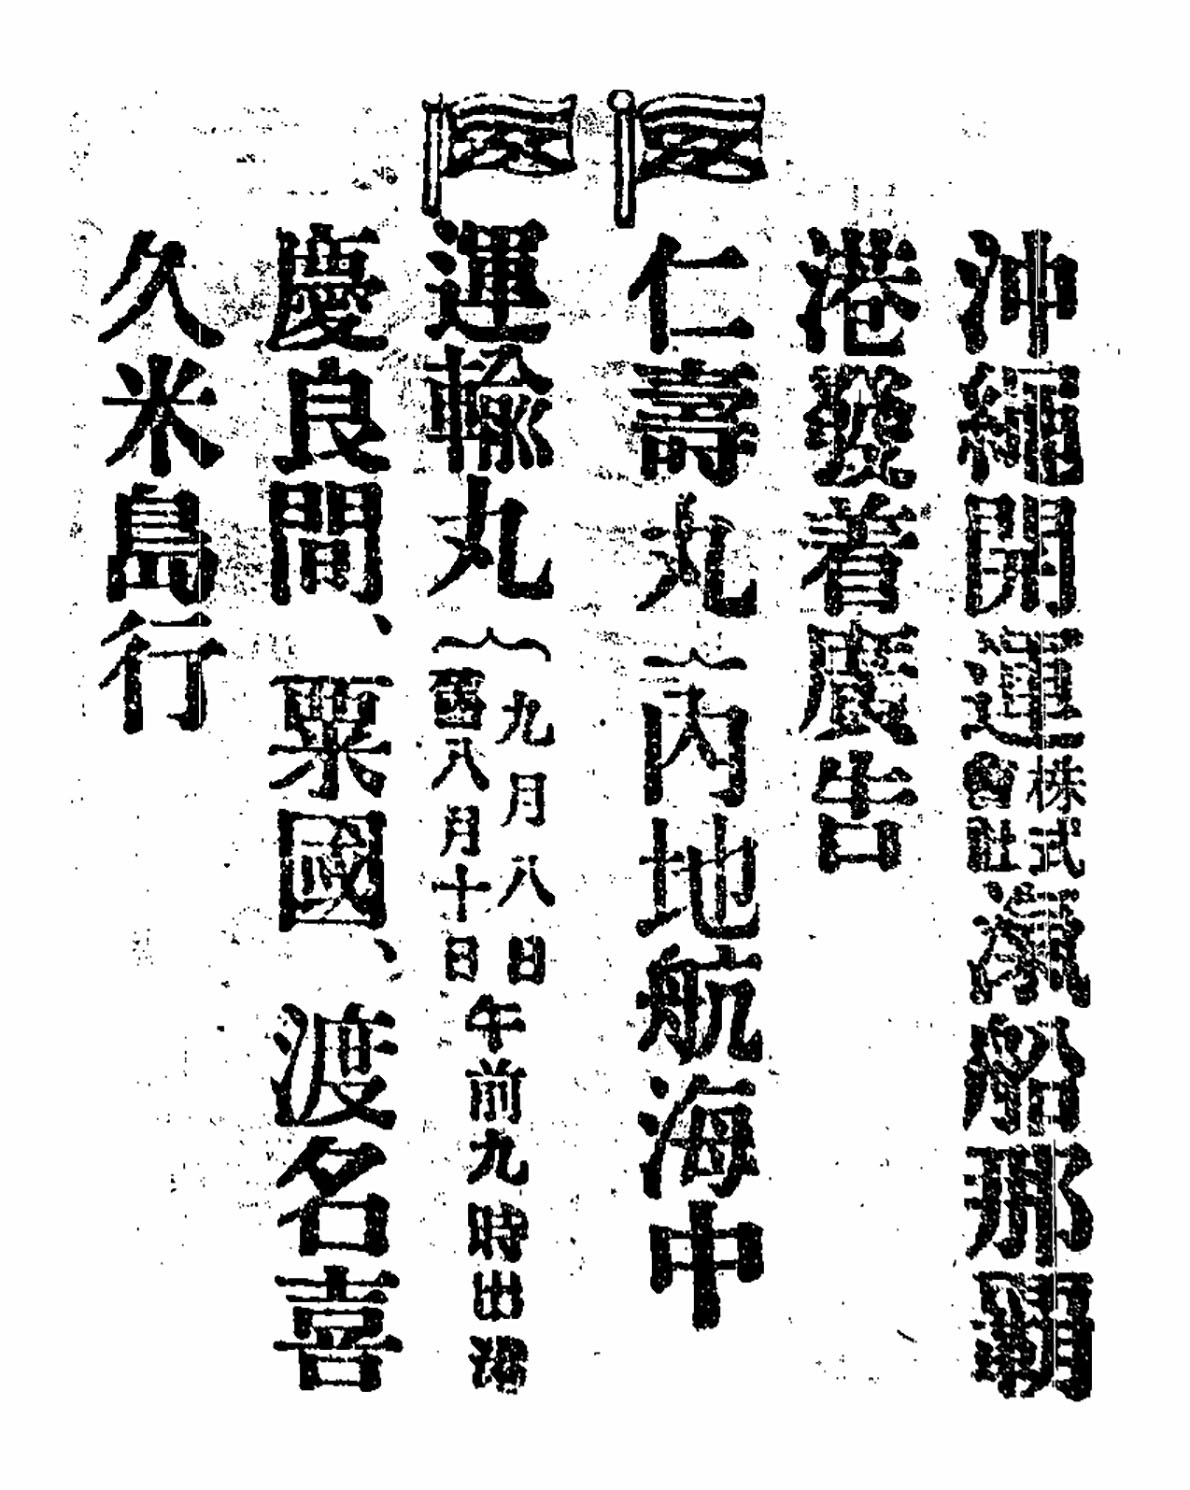 沖繩開運株式會社滊船那覇
港發着廣告
仁壽丸｛內地航海中
運輸丸｛九月八日
舊八月十日
午前九時出港
慶良間、粟國、渡名喜
久米島行